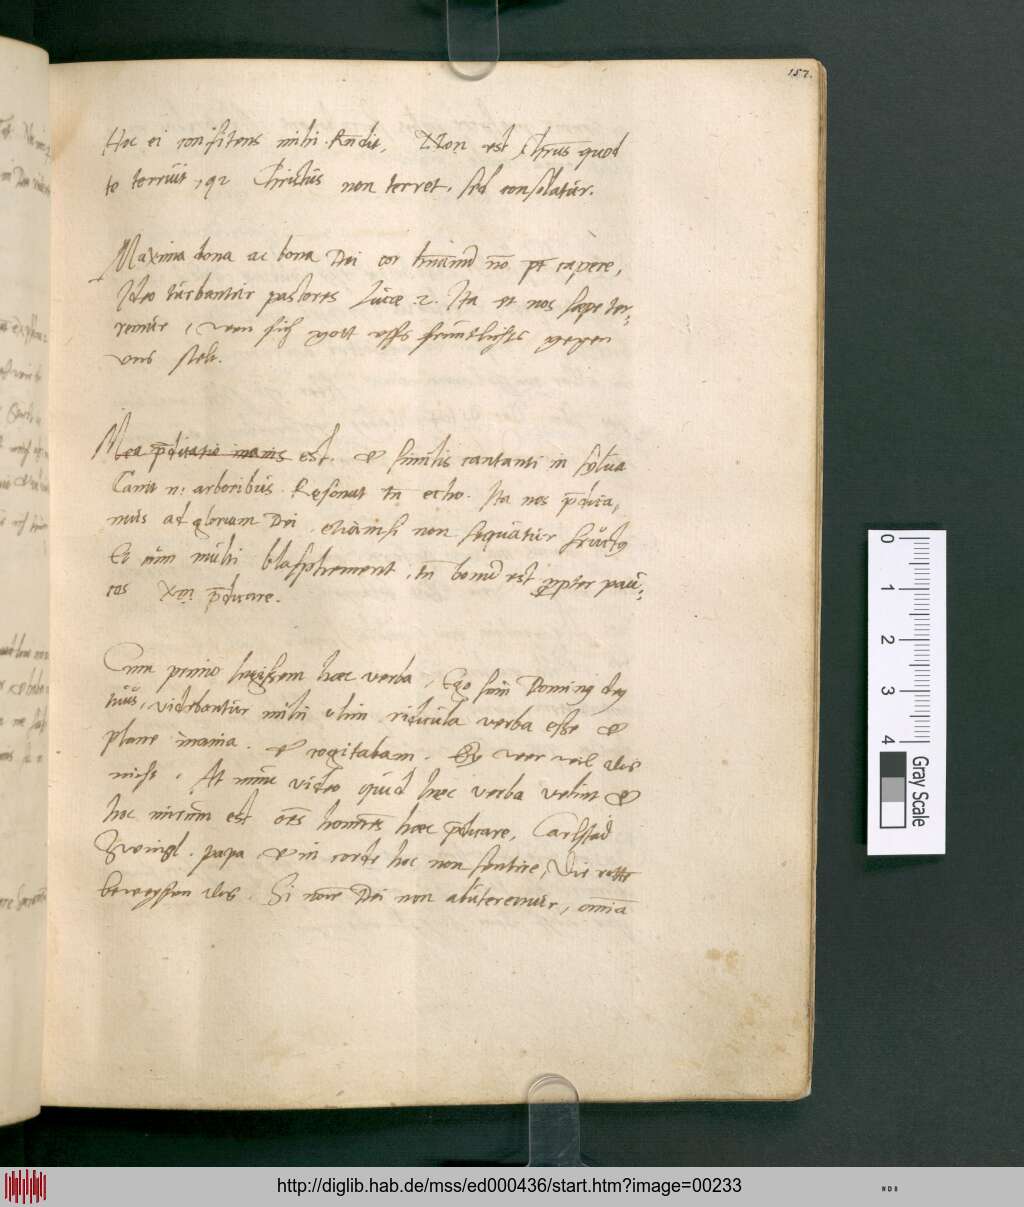 157.
Hoc ei confitens mihi Rñdit, Non est Chrũs quod
te terruit, qr Christus non terret, sed consolatur.
Maxima dona ac bona Dei cor hũanũ nõ pt capere,
Ideo turbantur pastores Lucæ .2. Ita et nos sæpe ter-
remur, wen sich gott uffs freuntlichsts gegen
uns stelt.
Mea p̄dicatio inanis est. & similis cantanti in sylva
Canit n: arboribus. Resonat tñ echo. Ita nos p̄dica-
mus ad gloriam Dei, etiamsi non sequatur fructus
Et cum multi blasphement, tñ bonũ est propter pau-
cos Xm p̄dicare.
Cum primo legissem hæc verba, Ego sum Dominus deus
tuus, videbantur mihi olim ridicula verba esse &
plane inania. & cogitabam. Ey wer weis das
nicht. At nunc video quid hæc verba velint &
hoc mirum est oẽs homĩes hæc p̄dicare, Carlstad
Zwingl. papa & in corde hoc non sentire, Die
beweysen das. Si noĩe Dei non abuteremur, omnia
0 1 2 3 4
Gray Scale
http://diglib.hab.de/mss/ed000436/start.htm?image=00233